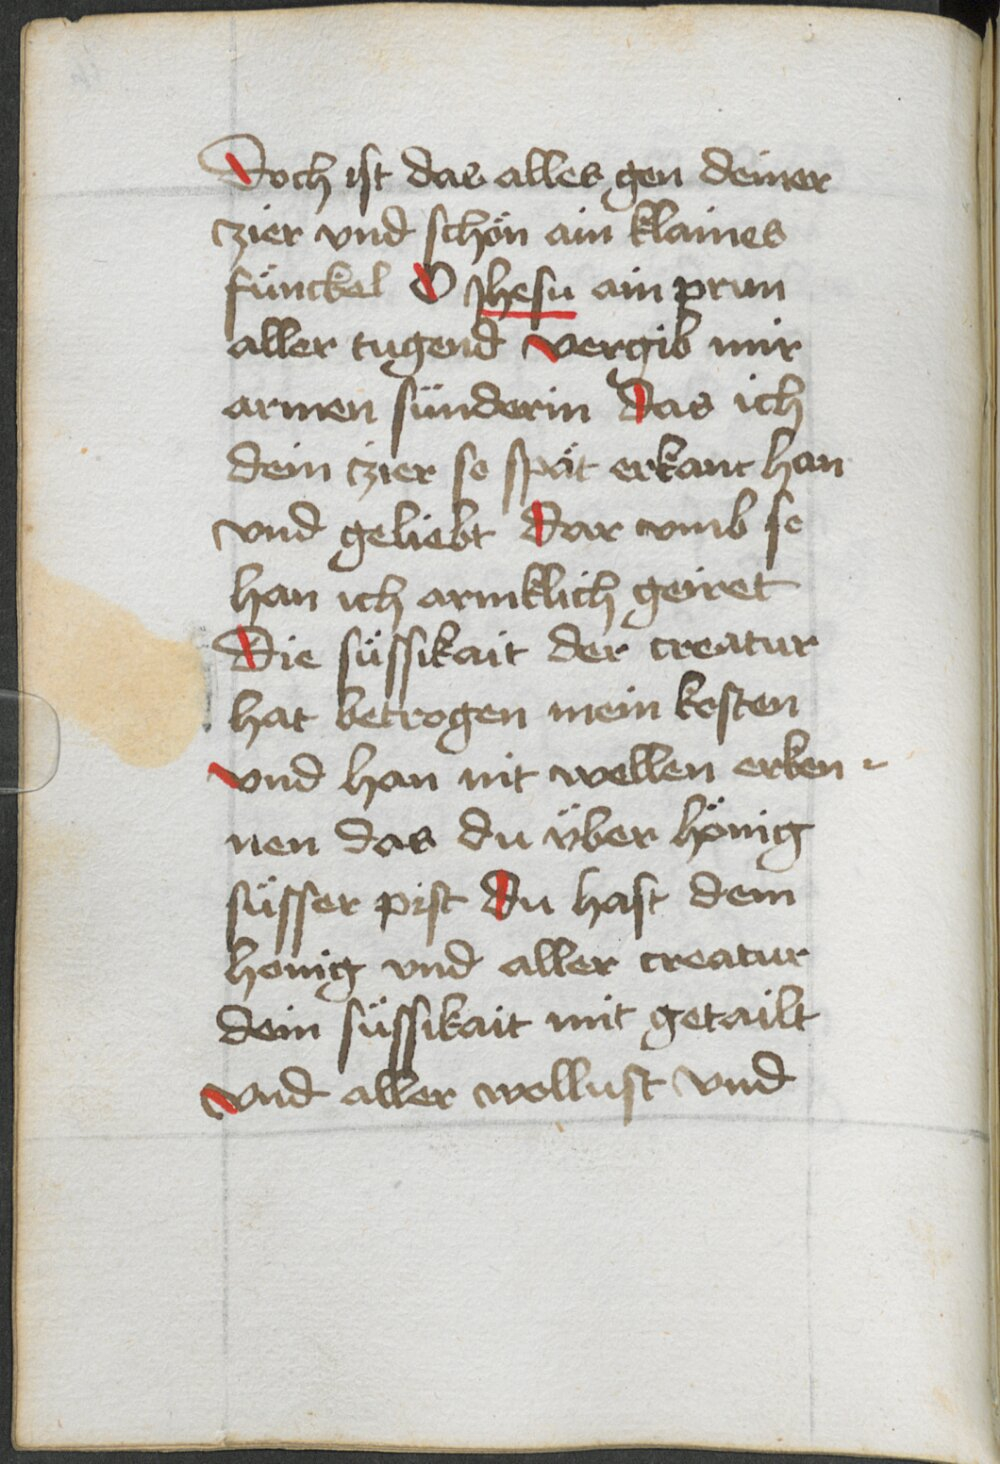 Doch ist das alles gen deiner
czier vnd schön ain klaines
fünckel O Jhesu ain prun
aller tugend vergib mir
armen sünderin das ich
dein czier so spät erkant han
vnd geliebt dar vmb so
han ich armklich geiret
Die süssikait der creatur
hat betrogen mein kosten
vnd han nit wellen erken-
nen das du über hönig
süsser pist du hast dem
honig vnd aller creatur
dein süssikait mit getailt
vnd aller wollust vnd